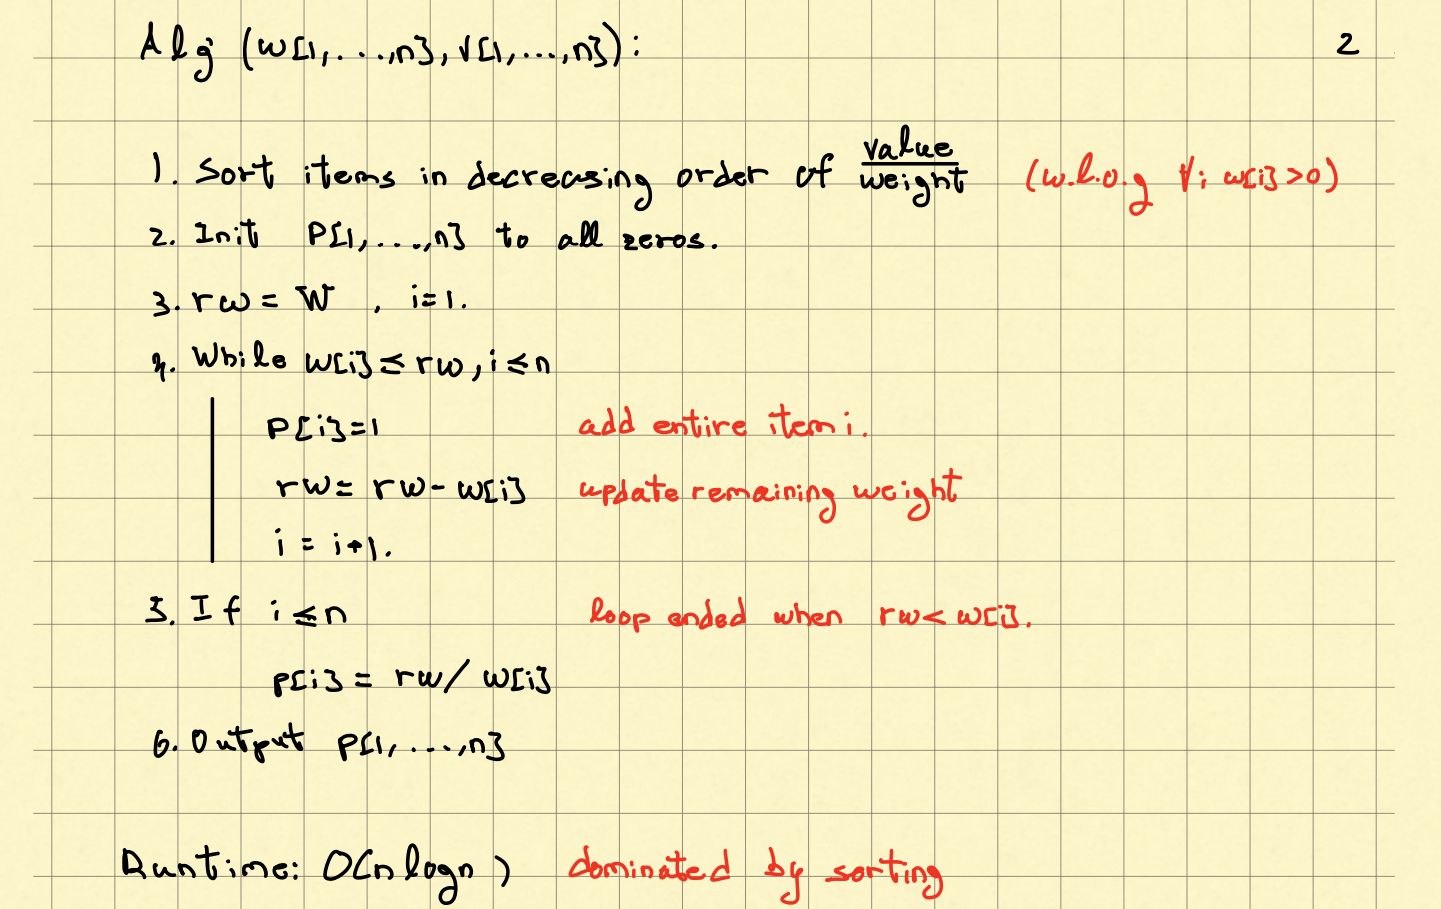 Alg (w[1,...,n], v[1,...,n]): 2
1. Sort items in decreasing order of value/weight (w.l.o.g ∀i w[i]>0)
2. Init P[1,...,n] to all zeros.
3. rw = W , i=1.
4. While w[i] ≤ rw, i ≤ n
P[i]=1 add entire item i.
rw = rw - w[i] update remaining weight
i = i+1.
5. If i ≤ n loop ended when rw < w[i].
p[i] = rw / w[i]
6. Output p[1,...,n]
Runtime: O(n log n) dominated by sorting